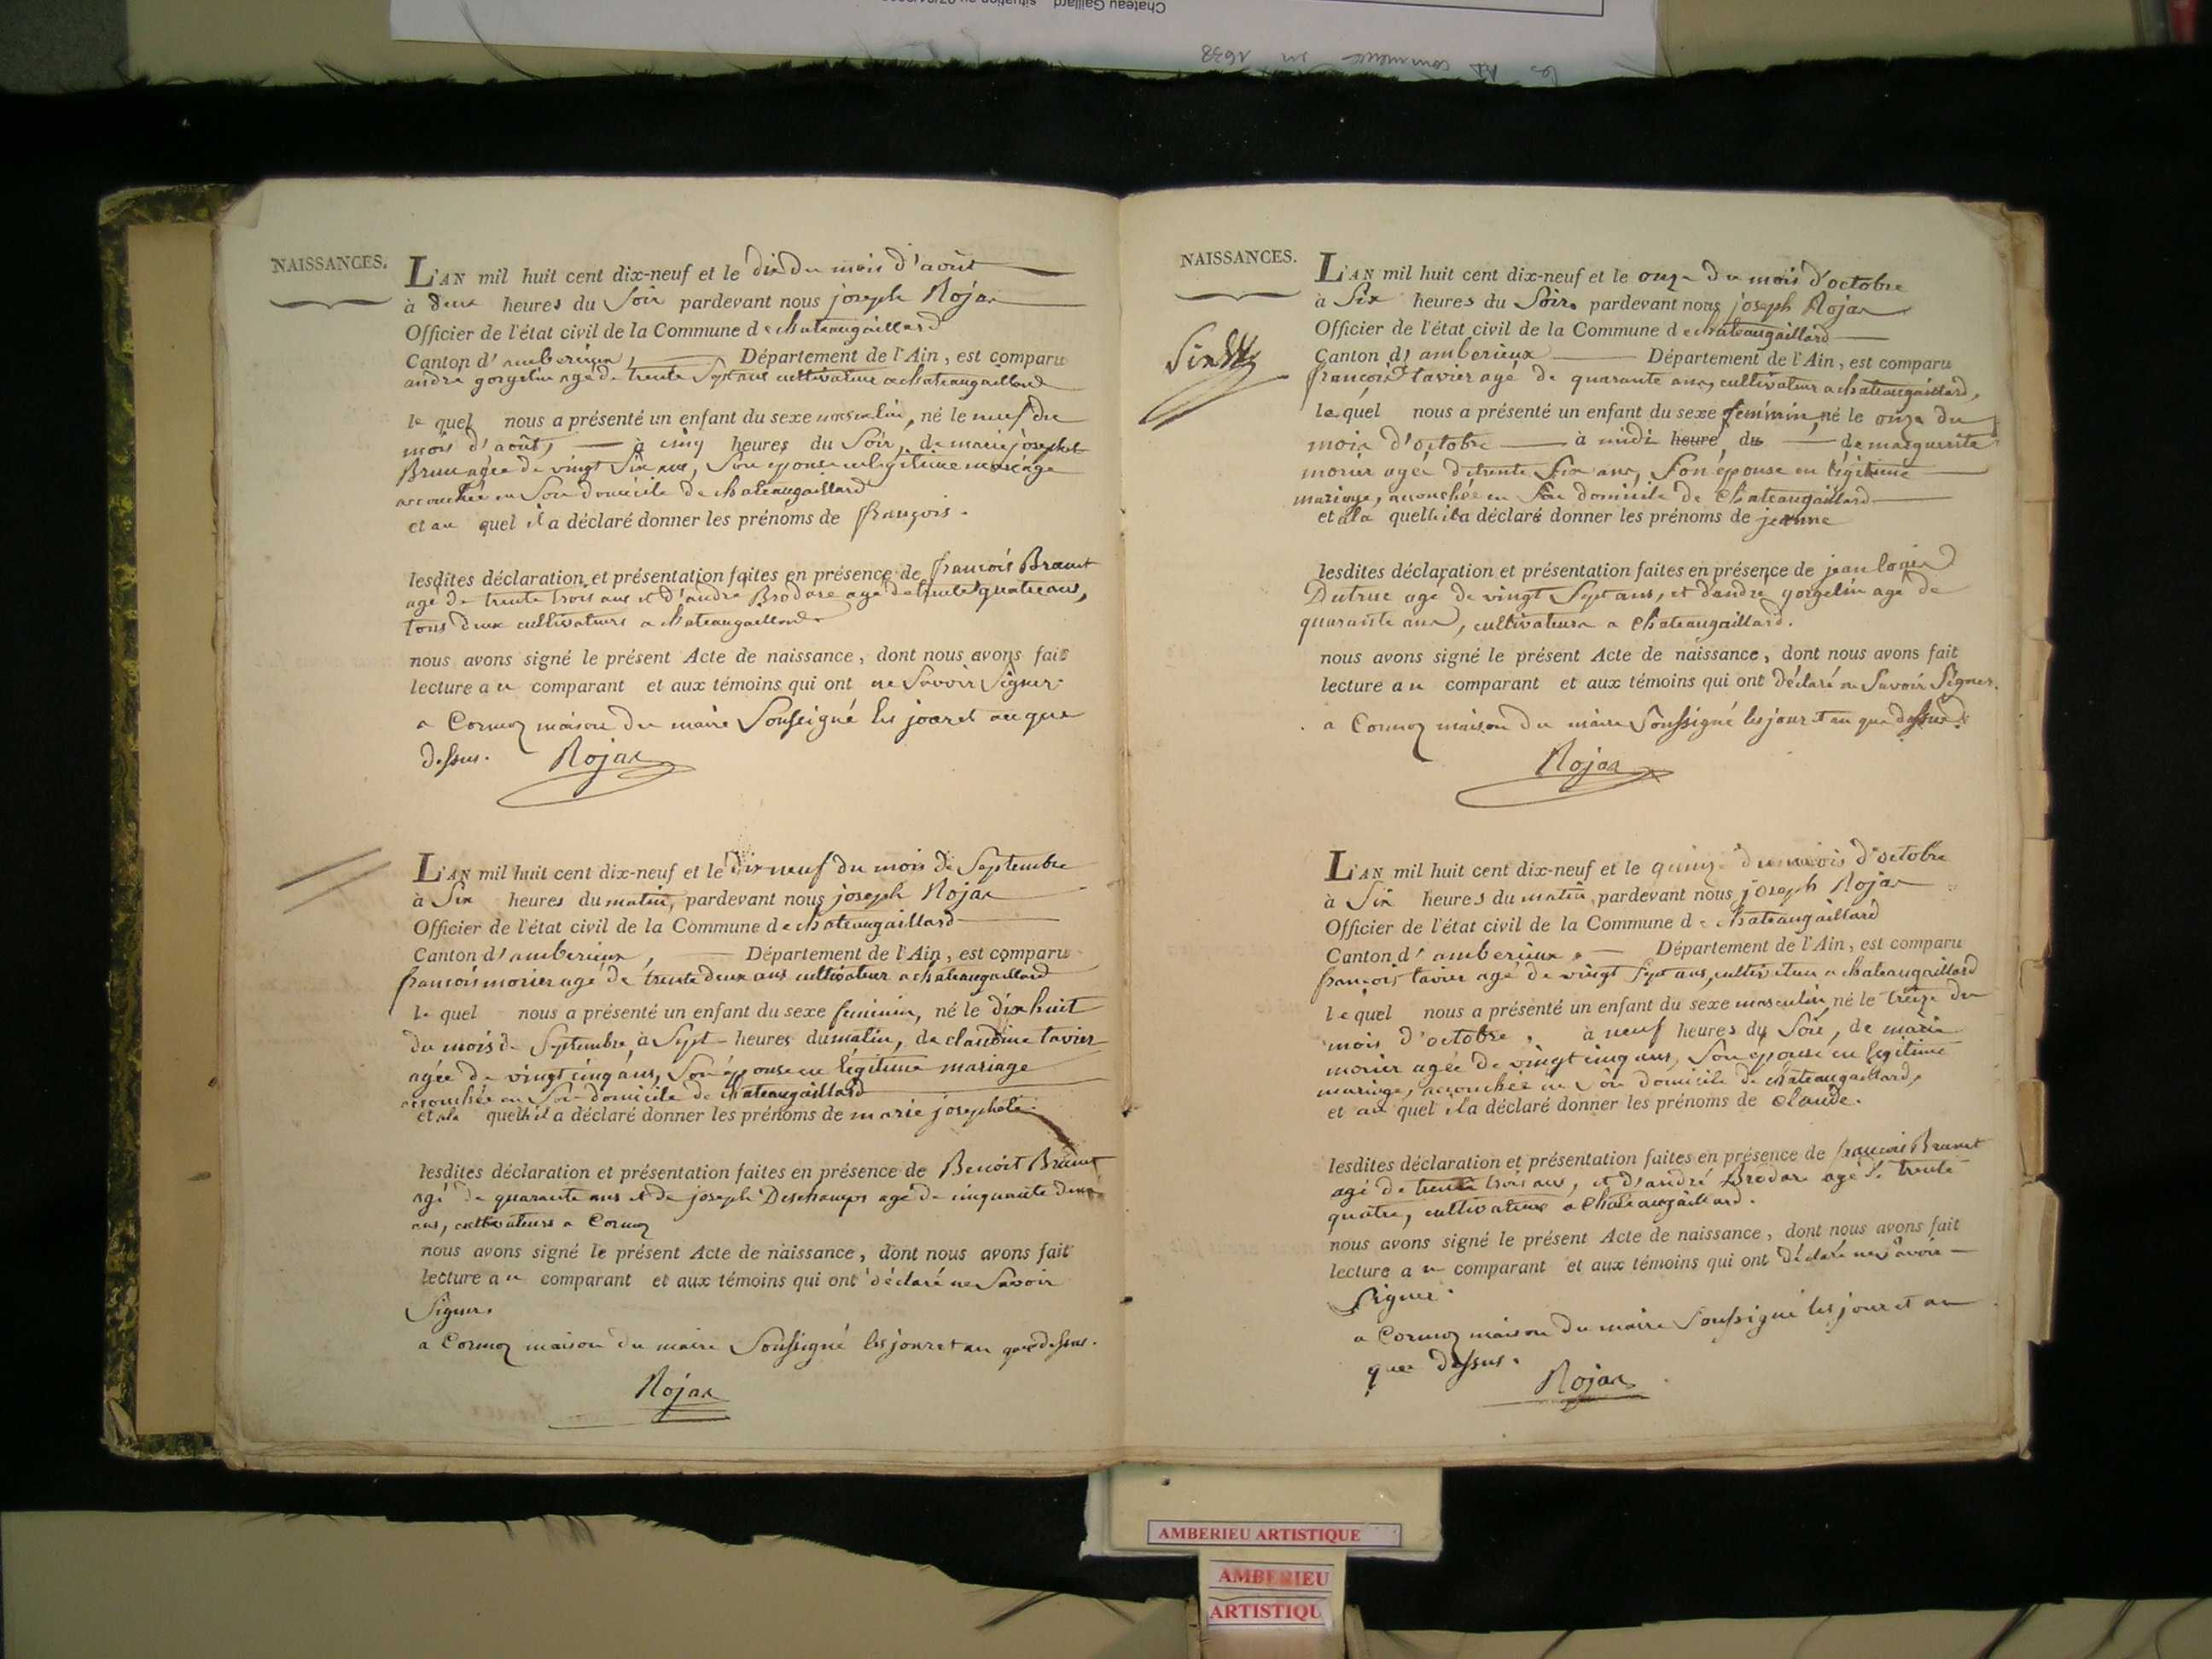 Chateau Gaillard
NAISSANCES.
L'AN mil huit cent dix-neuf et le dix du mois d'août
à deux heures du Soir pardevant nous joseph Rojat
Officier de l'état civil de la Commune de chateaugaillard
Canton d'amberieux, Département de l'Ain, est comparu
andré gorgelin agé de trente Sept ans cultivateur a chateaugaillard
le quel nous a présenté un enfant du sexe masculin, né le neuf du
mois d'août, à cinq heures du Soir, de marie josephte
Brun agée de vingt Six ans, Son epouse en legitime mariage
accouchée en Son domicile de chateaugaillard
et au quel il a déclaré donner les prénoms de françois.
lesdites déclaration et présentation faites en présence de françois Brunet
agé de trente trois ans et d'andré Brodare agé de trente quatre ans,
tous deux cultivateurs a chateaugaillard
nous avons signé le présent Acte de naissance, dont nous avons fait
lecture au comparant et aux témoins qui ont ne Savoir Signer.
a Cormoz maison du maire Soussigné les jour et an que
dessus. Rojat
L'AN mil huit cent dix-neuf et le dix neuf du mois de Septembre
à Six heures du matin, pardevant nous joseph Rojat
Officier de l'état civil de la Commune de chateaugaillard
Canton d'amberieux, Département de l'Ain, est comparu
françois morier agé de trente deux ans cultivateur a chateaugaillard
le quel nous a présenté un enfant du sexe feminin, né le dix huit
du mois de Septembre, à Sept heures du matin, de claudine tavier
agée de vingt cinq ans, Son épouse en légitime mariage
accouchée en Son domicile de chateaugaillard
et a la quelle il a déclaré donner les prénoms de marie josephte.
lesdites déclaration et présentation faites en présence de Benoit Brunet
agé de quarante ans et de joseph Deschamps agé de cinquante deux
ans, cultivateurs a Cormoz
nous avons signé le présent Acte de naissance, dont nous avons fait
lecture au comparant et aux témoins qui ont déclaré ne Savoir
Signer.
a Cormoz maison du maire Soussigné les jour et an que dessus.
Rojat
NAISSANCES.
L'AN mil huit cent dix-neuf et le onze du mois d'octobre
à Six heures du Soir, pardevant nous joseph Rojat
Officier de l'état civil de la Commune de chateaugaillard
Canton d'amberieux Département de l'Ain, est comparu
françois tavier agé de quarante ans, cultivateur a chateaugaillard,
le quel nous a présenté un enfant du sexe feminin, né le onze du
mois d'octobre à midi heure du de marguerite
morier agée de trente Six ans, Son épouse en légitime
mariage, accouchée en Son domicile de Chateaugaillard
et a la quelle il a déclaré donner les prénoms de jeanne
lesdites déclaration et présentation faites en présence de jean louis
Dutruc agé de vingt Sept ans, et d'andré gorgelin agé de
quarante ans, cultivateurs a Chateaugaillard.
nous avons signé le présent Acte de naissance, dont nous avons fait
lecture au comparant et aux témoins qui ont déclaré ne Savoir Signer.
a Cormoz maison du maire Soussigné les jour et an que dessus
Rojat
L'AN mil huit cent dix-neuf et le quinze du mois d'octobre
à Six heures du matin, pardevant nous joseph Rojat
Officier de l'état civil de la Commune de chateaugaillard
Canton d'amberieux, Département de l'Ain, est comparu
françois tavier agé de vingt Sept ans, cultivateur a chateaugaillard
le quel nous a présenté un enfant du sexe masculin, né le treize du
mois d'octobre, à neuf heures du Soir, de marie
morier agée de vingt cinq ans, Son epouse en legitime
mariage, accouchée en Son domicile de chateaugaillard,
et au quel il a déclaré donner les prénoms de claude.
lesdites déclaration et présentation faites en présence de françois Brunet
agé de trente trois ans, et d'andré Brodare agé de trente
quatre, cultivateurs a Chateaugaillard.
nous avons signé le présent Acte de naissance, dont nous avons fait
lecture au comparant et aux témoins qui ont déclaré ne Savoir
Signer.
a Cormoz maison du maire Soussigné les jour et an
que dessus.
Rojat
AMBERIEU ARTISTIQUE
AMBERIEU
ARTISTIQU